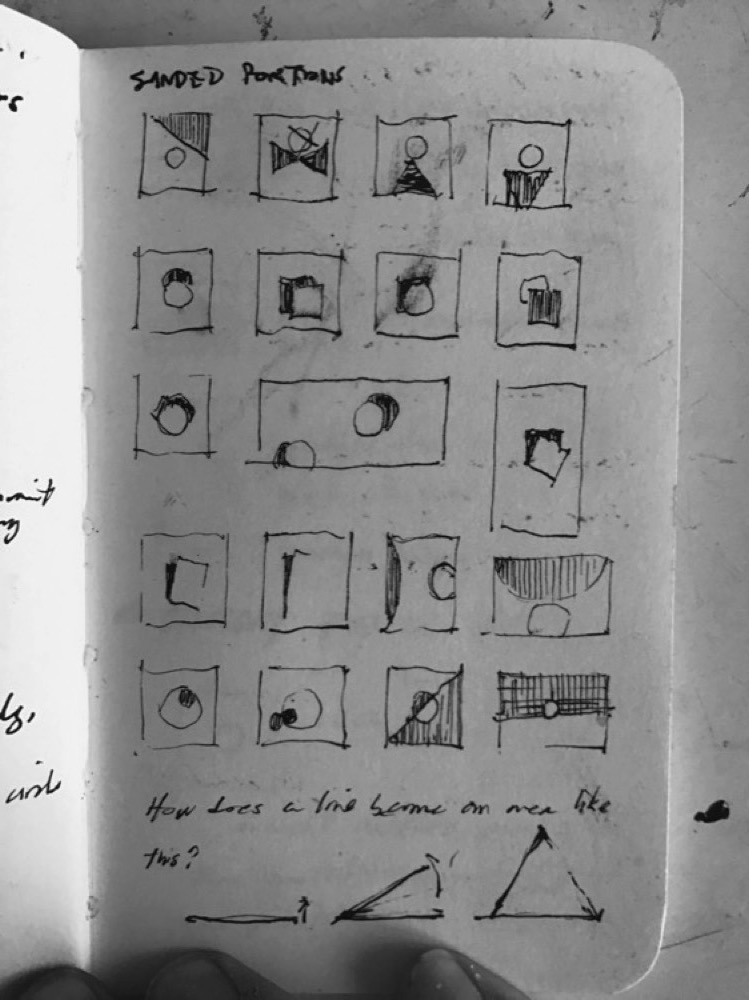 SANDED PORTIONS
How does a line become an area like
this?